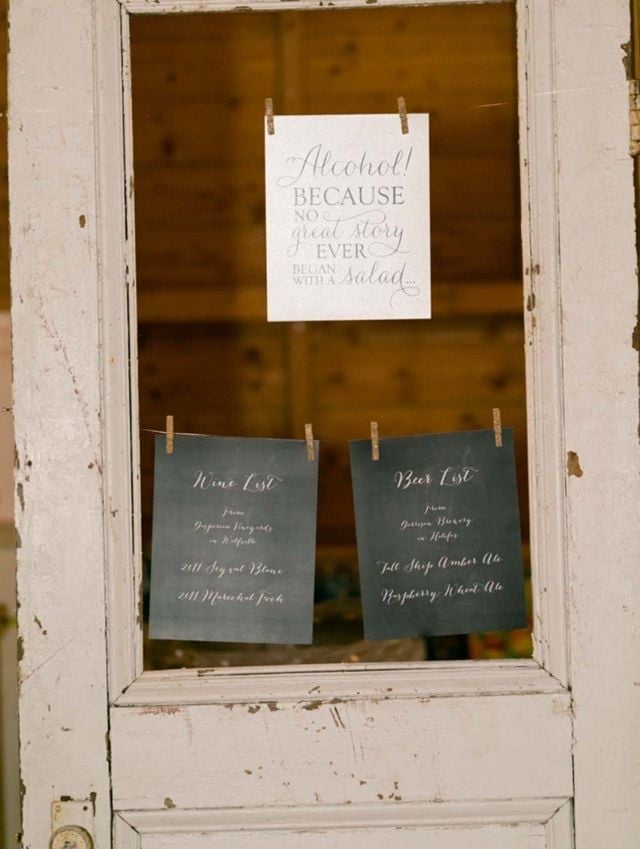 Alcohol!
BECAUSE
NO
great story
EVER
BEGAN
WITH A salad...
Wine List
From
Gasperau Vineyards
in Wolfville
2011 Seyval Blanc
2011 Marechal Foch
Beer List
From
Garrison Brewery
in Halifax
Tall Ship Amber Ale
Raspberry Wheat Ale